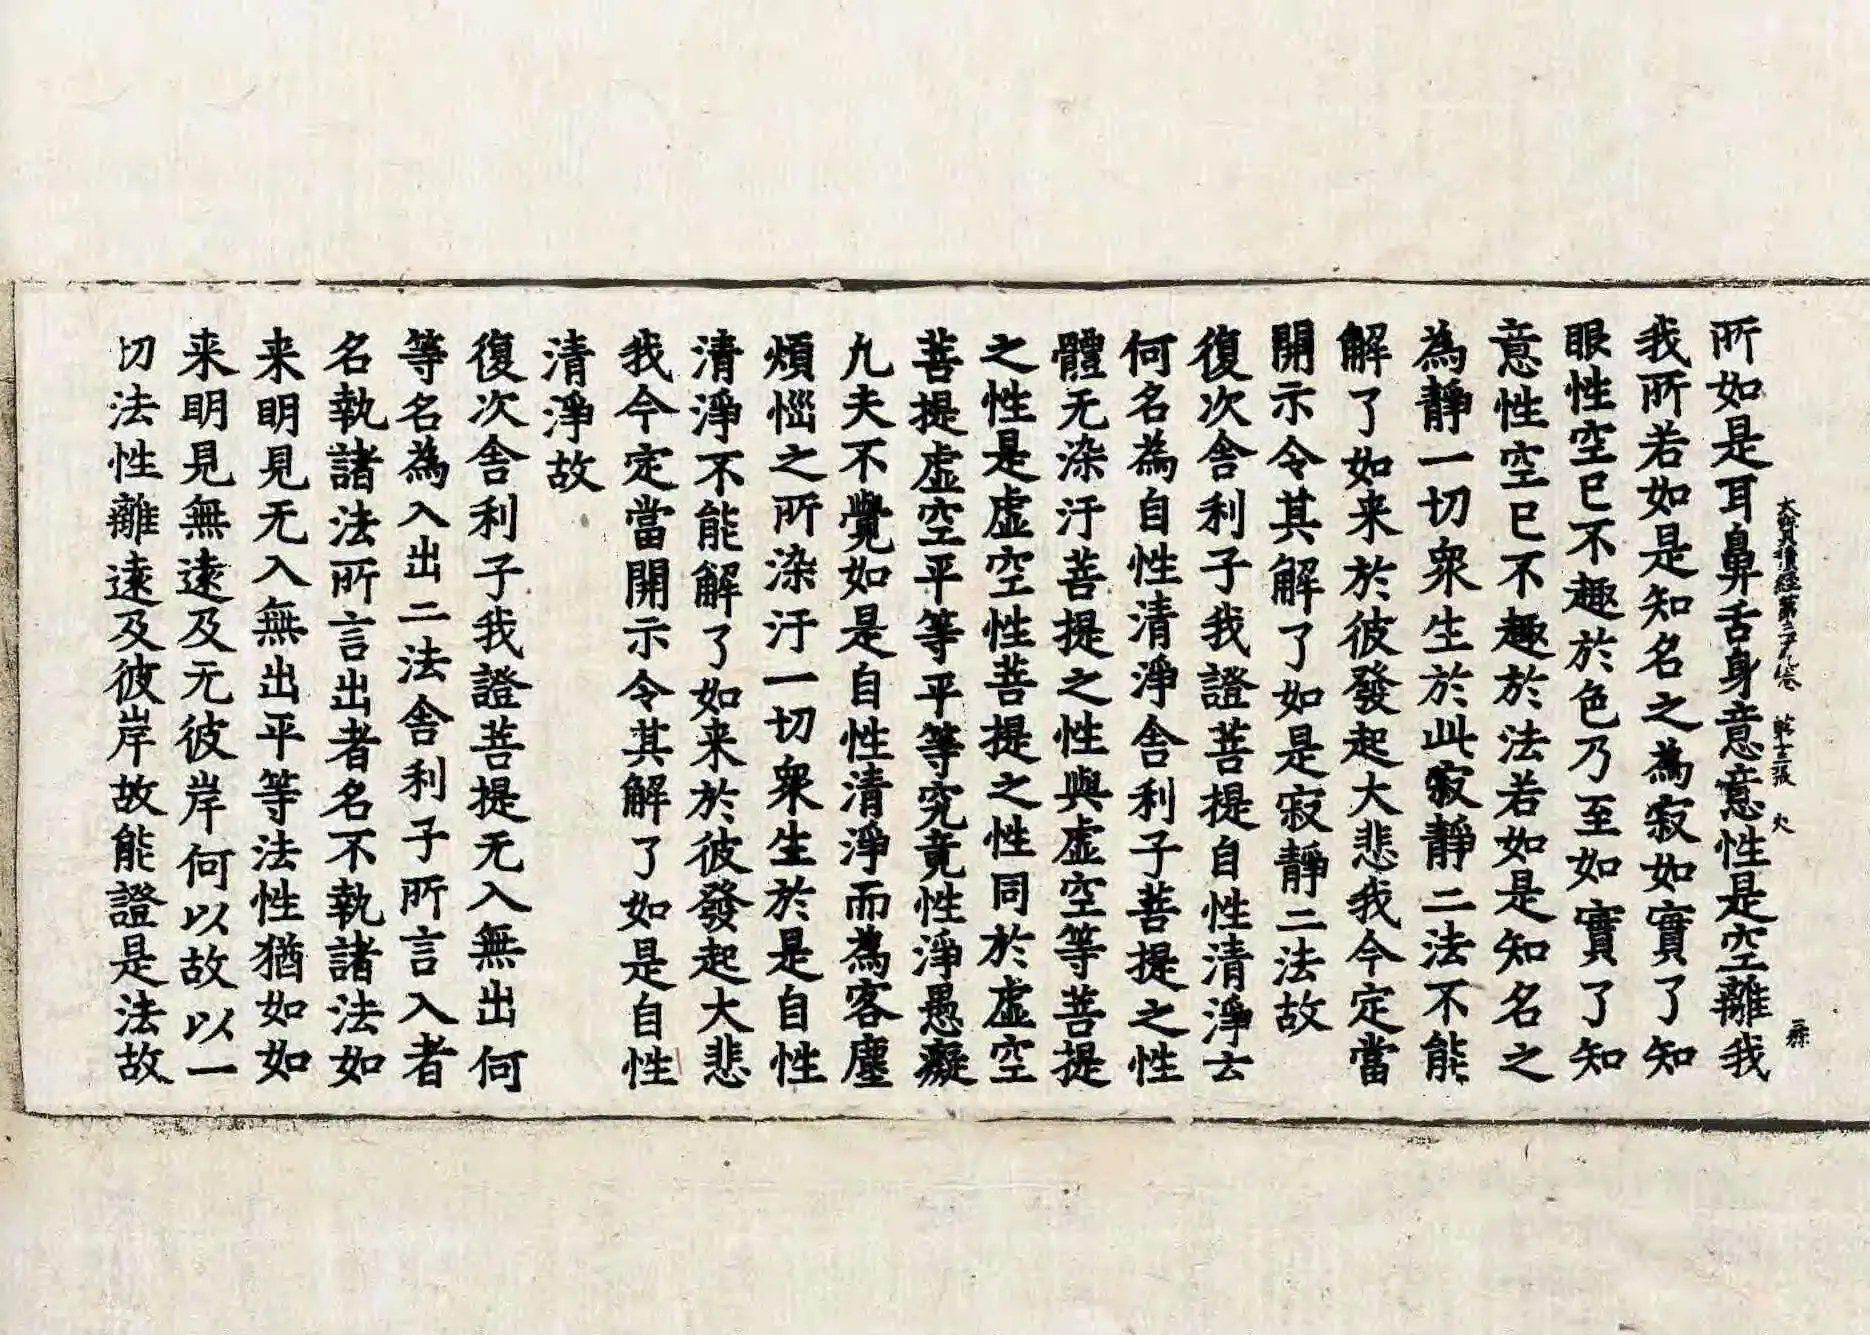 大寶積經第三十九卷 第十三張 火
所如是耳鼻舌身意意性是空離我
我所若如是知名之為寂如實了知
眼性空已不趣於色乃至如實了知
意性空已不趣於法若如是知名之
為靜一切衆生於此寂靜二法不能
解了如来於彼發起大悲我今定當
開示令其解了如是寂靜二法故
復次舍利子我證菩提自性清淨云
何名為自性清淨舍利子菩提之性
體无染汙菩提之性與虛空等菩提
之性是虛空性菩提之性同於虛空
菩提虛空平等平等究竟性淨愚癡
凡夫不覺如是自性清淨而為客塵
煩惱之所染汙一切衆生於是自性
清淨不能解了如来於彼發起大悲
我今定當開示令其解了如是自性
清淨故
復次舍利子我證菩提无入無出何
等名為入出二法舍利子所言入者
名執諸法所言出者名不執諸法如
来明見无入無出平等法性猶如如
来明見無遠及无彼岸何以故以一
切法性離遠及彼岸故能證是法故